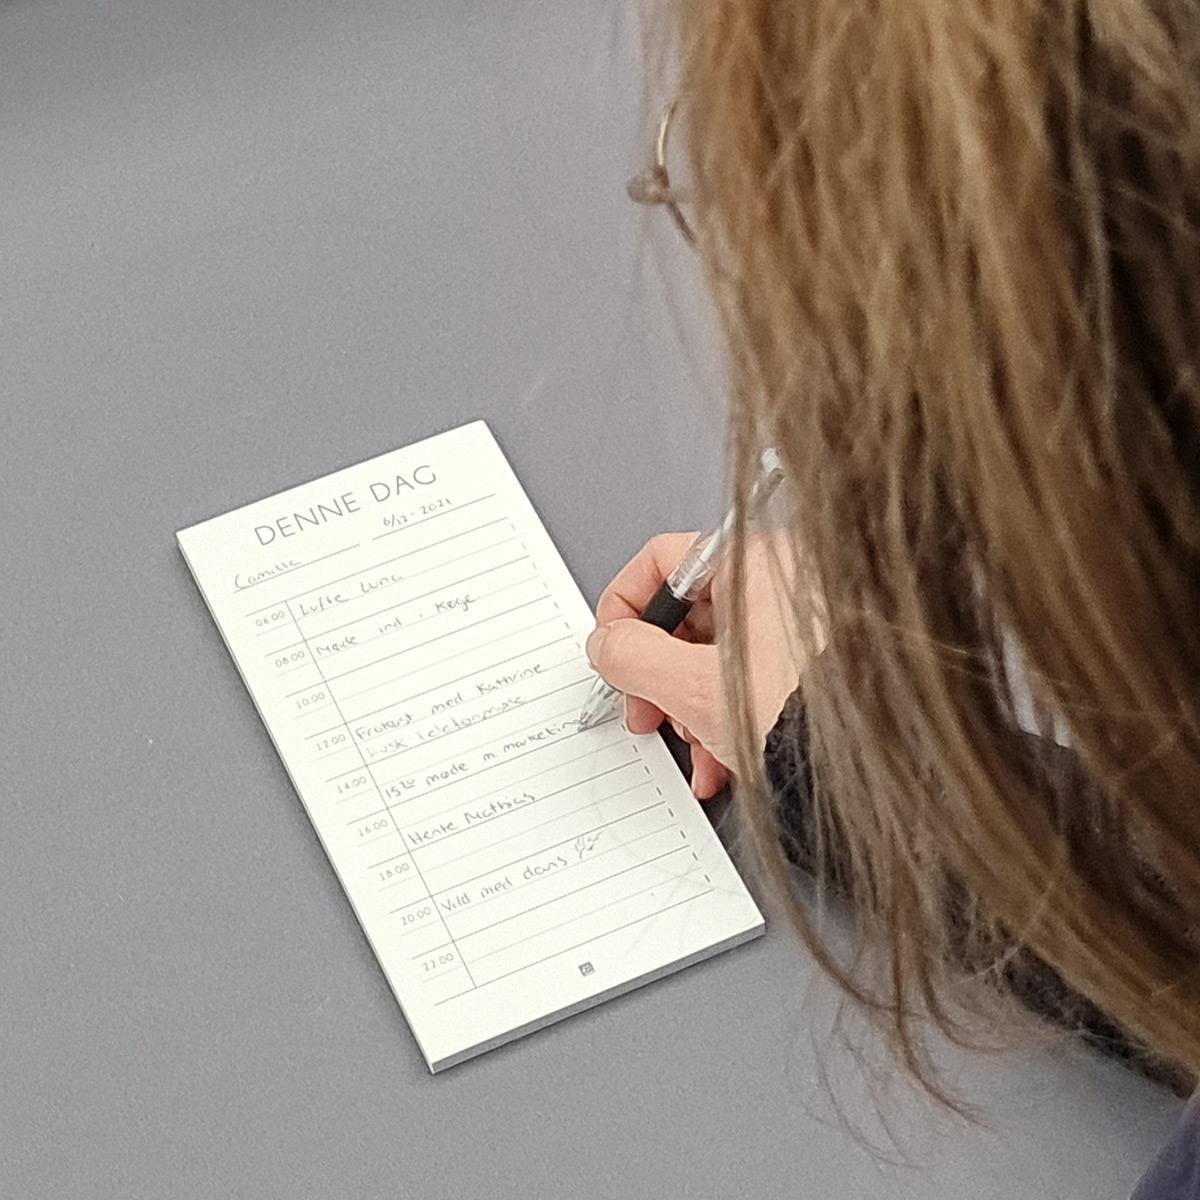 DENNE DAG
Camilla
6/12-2021
06:00 Lufte Luna
08:00 Møde ind i Køge
10:00
12:00 Frokost med Kathrine
husk telefonmøde
14:00 15³⁰ møde m marketing
16:00 Hente Mathias
18:00
20:00 Vild med dans
22:00